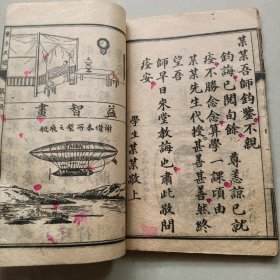 某某吾師鈞鑒不親
鈞誨已閱旬餘　尊恙諒已就
痊不勝念念算學一課項由
某某先生代授甚善甚善然終
望吾
師早日來堂教誨也肅此敬問
痊安
學生某某敬上
益智畫
附借泰西製之飛艇